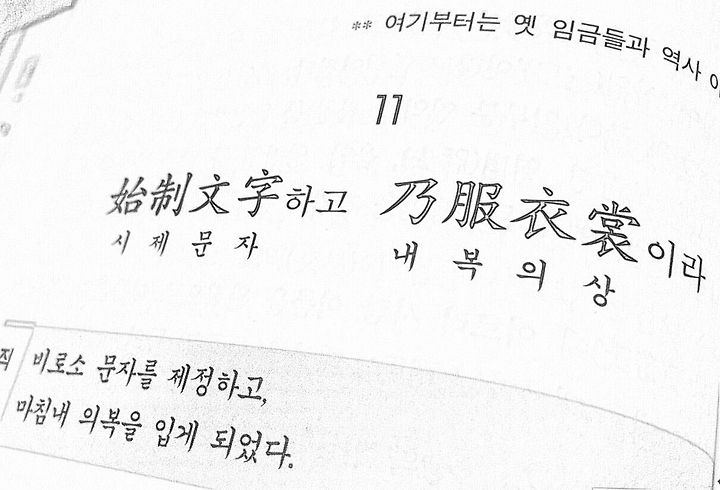 ** 여기부터는 옛 임금들과 역사 이
11
始制文字하고 乃服衣裳이라
시 제 문 자 내 복 의 상
직 비로소 문자를 제정하고,
마침내 의복을 입게 되었다.